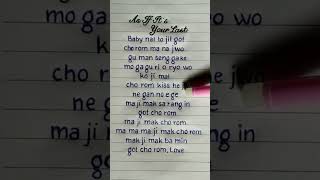 As If It's
Your Last
Baby nal to jil got
cho rom ma na jwo
gu man seng gak e
mo ga gu ri o ryo wo
ko ji mal
cho rom kiss he
ne gan no e ge
ma ji mak sa rang in
got cho rom
ma ji mak cho rom
ma ma ma ji mak cho rom
mak ji mak ba min
got cho rom, Love